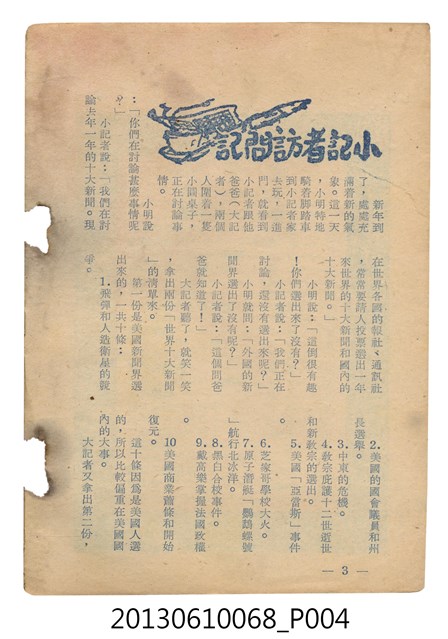 小記者訪問記
新年到
了，處處充
滿着新的氣
象。這一天
，小明特地
騎着脚踏車
到小記者家
去玩，一進
門，就看到
小記者跟他
爸爸（大記
者），兩個
人圍着一隻
小圓桌子，
正在討論事
情。
小明說
：「你們在討論甚麼事情呢
？」
小記者說：「我們在討
論去年一年的十大新聞。現
在世界各國的報社、通訊社
，常常要請人投票選出一年
來世界的十大新聞和國內的
十大新聞。」
小明說：「這倒很有趣
！你們選出來了沒有？」
小記者說：「我們正在
討論，還沒有選出來呢？」
小明就問：「外國的新
聞界選出了沒有呢？」
小記者說：「這個問爸
爸就知道了！」
大記者聽了，就笑一笑
，拿出兩份「世界十大新聞
」的清單來。
第一份是美國新聞界選
出來的，一共十條：
1.飛彈和人造衛星的競
爭。
2.美國的國會議員和州
長選舉。
3.中東的危機。
4.教宗庇護十二世逝世
和新教宗的選出。
5.美國「亞當斯」事件
。
6.芝家哥學校大火。
7.原子潛艇「鸚鵡螺號
」航行北冰洋。
8.黑白合校事件。
9.戴高樂掌握法國政權
。
10美國商業蕭條和開始
復元。
這十條因為是美國人選
的，所以比較偏重在美國國
內的大事。
大記者又拿出第二份，
— 3 —
20130610068_P004